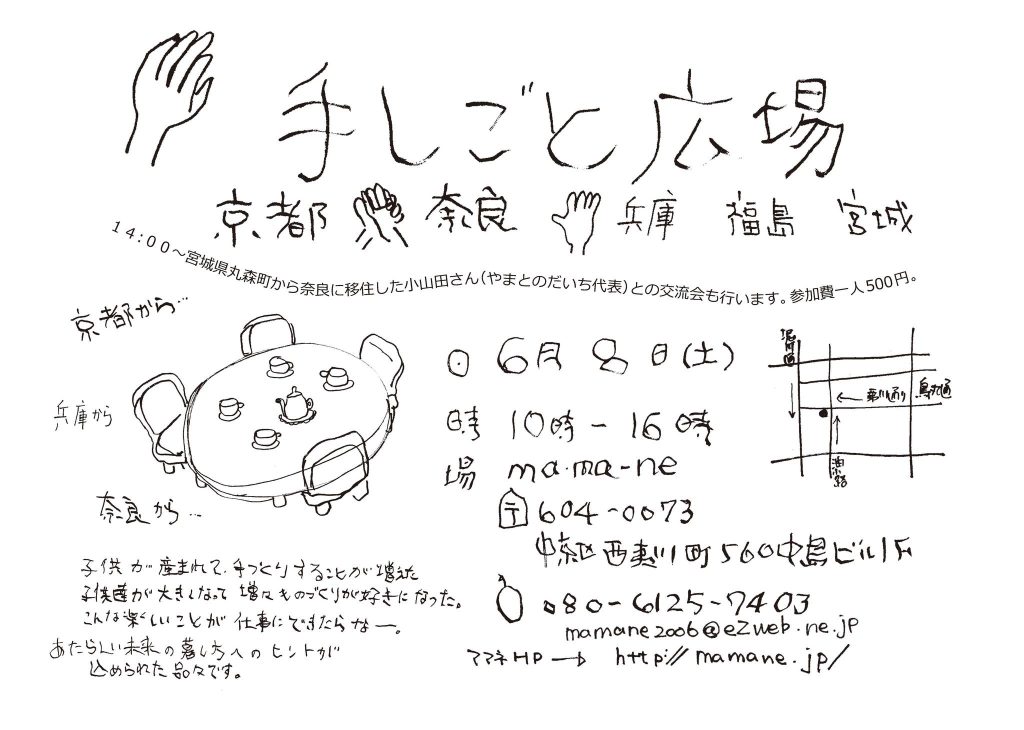 手しごと広場
京都 奈良 兵庫 福島 宮城
14:00～宮城県丸森町から奈良に移住した小山田さん(やまとのだいち代表)との交流会も行います。参加費一人500円。
京都から…
兵庫から
奈良から…
日 6月8日(土)
時 10時-16時
場 ma・ma-ne
〒604-0073
中京区西夷川町560中島ビル1F
080-6125-7403
mamane2006@ezweb.ne.jp
ママネHP→ http://mamane.jp/
堀川通
夷川通り
烏丸通
子供が産まれて、手づくりすることが増えた
子供達が大きくなって 増々ものづくりが好きになった。
こんな楽しいことが 仕事にできたらなー。
あたらしい未来の暮し方へのヒントが
込められた品々です。